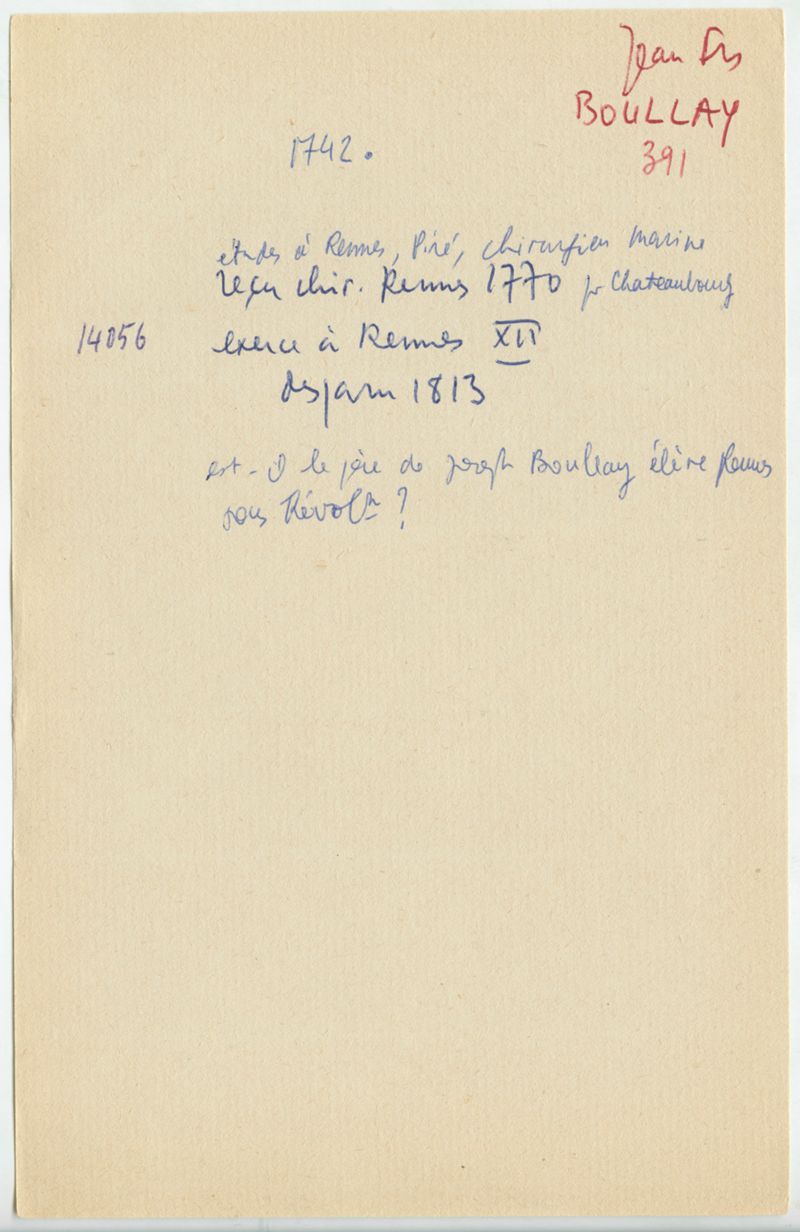 Jean Frs
BOULLAY
391
1742.
études à Rennes, Piré, chirurgien marine
reçu chir. Rennes 1770 pr Chateaubourg
14056 exerce à Rennes XII
disparu 1813
est-il le père de Joseph Boullay élève Rennes
sous Révoltn ?